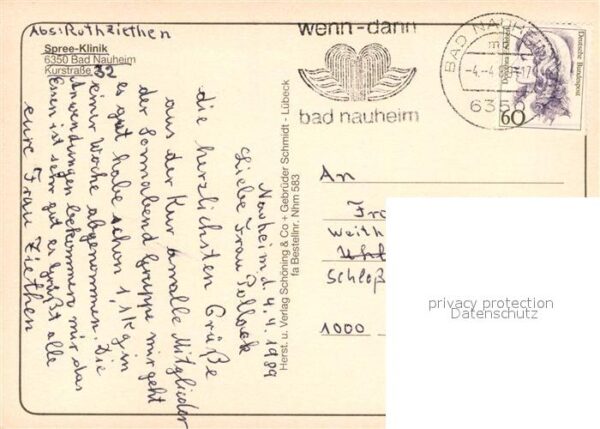 Abs: Ruth Ziethen
Spree-Klinik
6350 Bad Nauheim
Kurstraße 32
wenn-dann
bad nauheim
BAD NAUHEIM
-4.-4.89-17
6350
Deutsche Bundespost
60
Nauheim, d 4.4.1989
Liebe Frau Pollack
die herzlichsten Grüße
aus der Kur an alle Mitglieder
der Sonnabend Gruppe mir geht
es gut habe schon 1,1kg in
einer Woche abgenommen. Die
Anwendungen bekommen mir das
Essen ist sehr gut es Grüßt alle
eure Frau Ziethen
Herst. u. Verlag Schöning & Co + Gebrüder Schmidt - Lübeck
fa Bestellnr. Nhm 583
An
Fr
Weith
Schloß
1000
privacy protection
Datenschutz